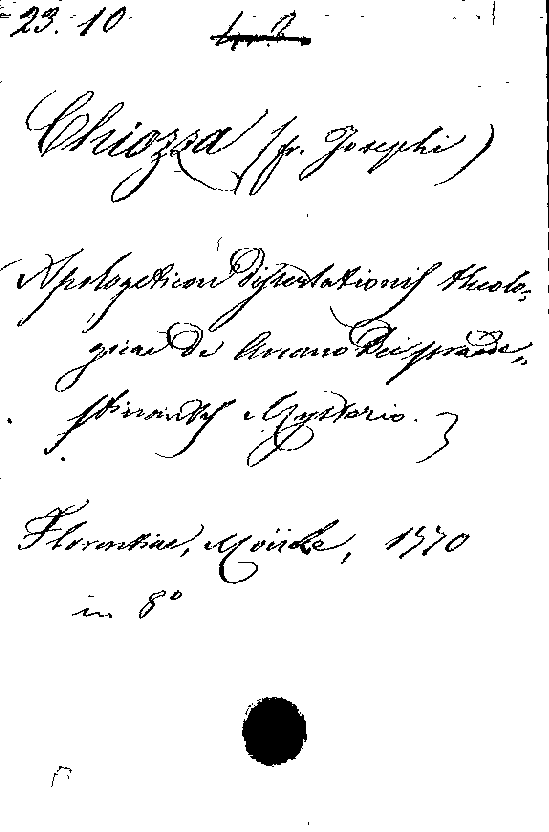 23. 10
Chiozza (fr. Josephi)
Apologeticon Dissertationis theolo-
gicae De Arcano Dei praede-
stinantis Mysterio.
Florentiae, Moücke, 1770
in 8°